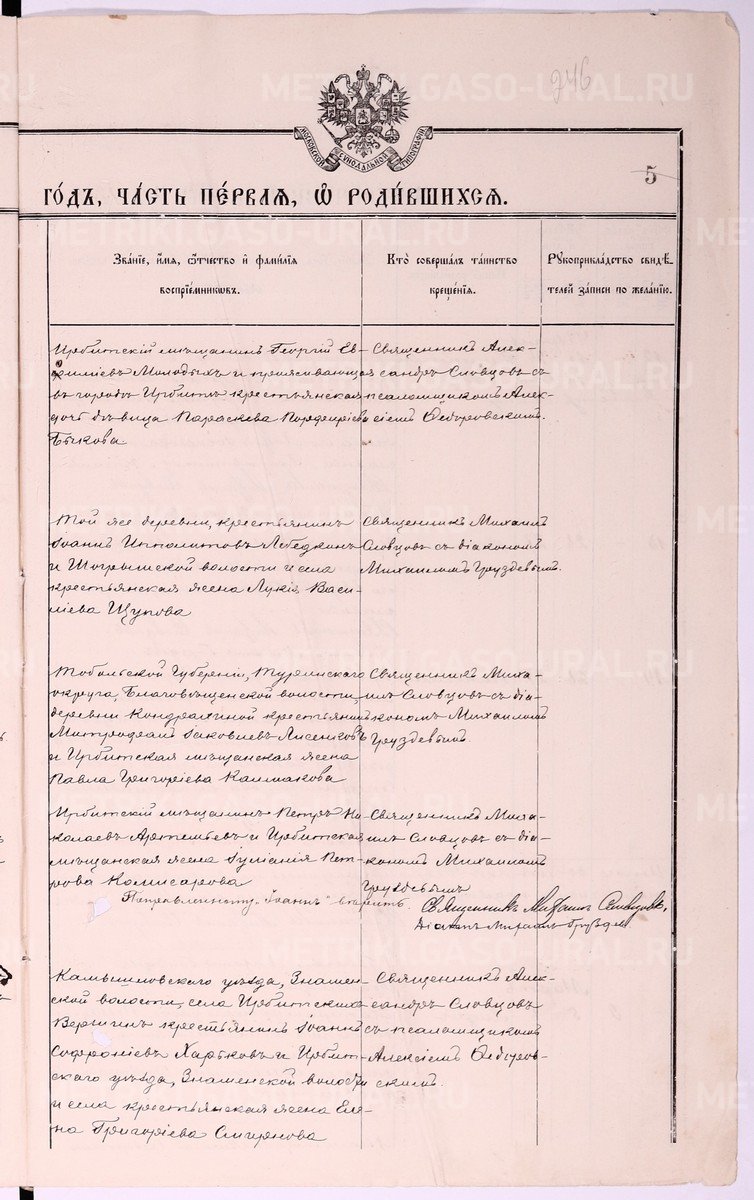 246
МОСКОВСКОЙ СѴНОДАЛЬНОЙ ТИПОГРАФІИ
5
ГО́ДЪ, ЧА́СТЬ ПЕ́РВАЯ, Ѽ РОДИ́ВШИХСЯ.
Зва́ніе, и́мя, ѻ́тчество и҆ фами́лія
воспріе́мниковъ.
Кто̀ соверша́лъ та́инство
креще́нія.
Рꙋкоприкла́дство свидѣ́-
телей за́писи по жела́нію.
Ирбитскій мѣщанинъ Георгій Ев-
филіевъ Молодыхъ и проживающая
въ городѣ Ирбитѣ крестьянская
дочь дѣвица Параскева Порфиріева
Быкова
Священникъ Алек-
сандръ Словцовъ съ
псаломщикомъ Алек-
сіемъ Ѳедоровскимъ.
Той же деревни, крестьянинъ
Іоаннъ Ипполитовъ Лебедкинъ
и Шогрышской волости и села
крестьянская жена Лукія Васи-
ліева Щупова
Священникъ Михаилъ
Словцовъ съ діакономъ
Михаиломъ Груздевымъ.
Тобольской Губерніи, Туринскаго
округа, Благовѣщенской волости,
деревни Кондрахиной крестьянинъ
Митрофанъ Іаковлевъ Лисенковъ
и Ирбитская мѣщанская жена
Павла Григоріева Калмакова
Священникъ Миха-
илъ Словцовъ съ діа-
кономъ Михаиломъ
Груздевымъ.
Ирбитскій мѣщанинъ Петръ Ни-
колаевъ Артемьевъ и Ирбитская
мѣщанская жена Іуліанія Пет-
рова Комисарова
Священникъ Миха-
илъ Словцовъ съ діа-
кономъ Михаиломъ
Груздевымъ
Поправленному „Іоаннъ" вѣрить. Священникъ Михаилъ Словцовъ,
Діаконъ Михаилъ Груздевъ
Камышловскаго уѣзда, Знамен-
ской волости, села Ирбитскихъ
Вершинъ крестьянинъ Іоаннъ
Софроніевъ Харьковъ и Ирбит-
скаго уѣзда, Знаменской волости
и села крестьянская жена Еле-
на Григоріева Смирнова
Священникъ Алек-
сандръ Словцовъ
съ псаломщикомъ
Алексіемъ Ѳедоров-
скимъ.
METRIKI.GASO-URAL.RU